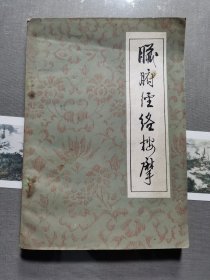 臟腑经络按摩